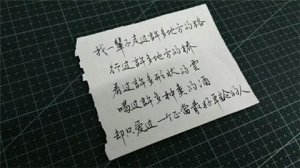 我一輩子走过許多地方的路
行过許多地方的橋
看过許多形狀的雲
喝过許多种类的酒
却只爱过一个正當最好年龄的人